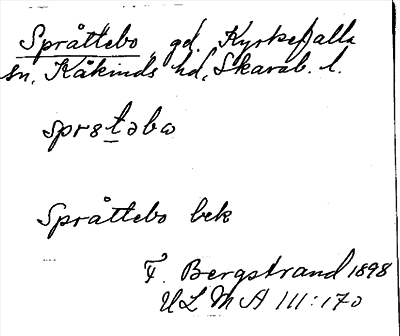 Språttebo gd. Kyrkefalla
sn, Kåkinds hd, Skarab. l.
sprɛtəbω
Språttebo bek
F. Bergstrand 1898
ULMA 111:170